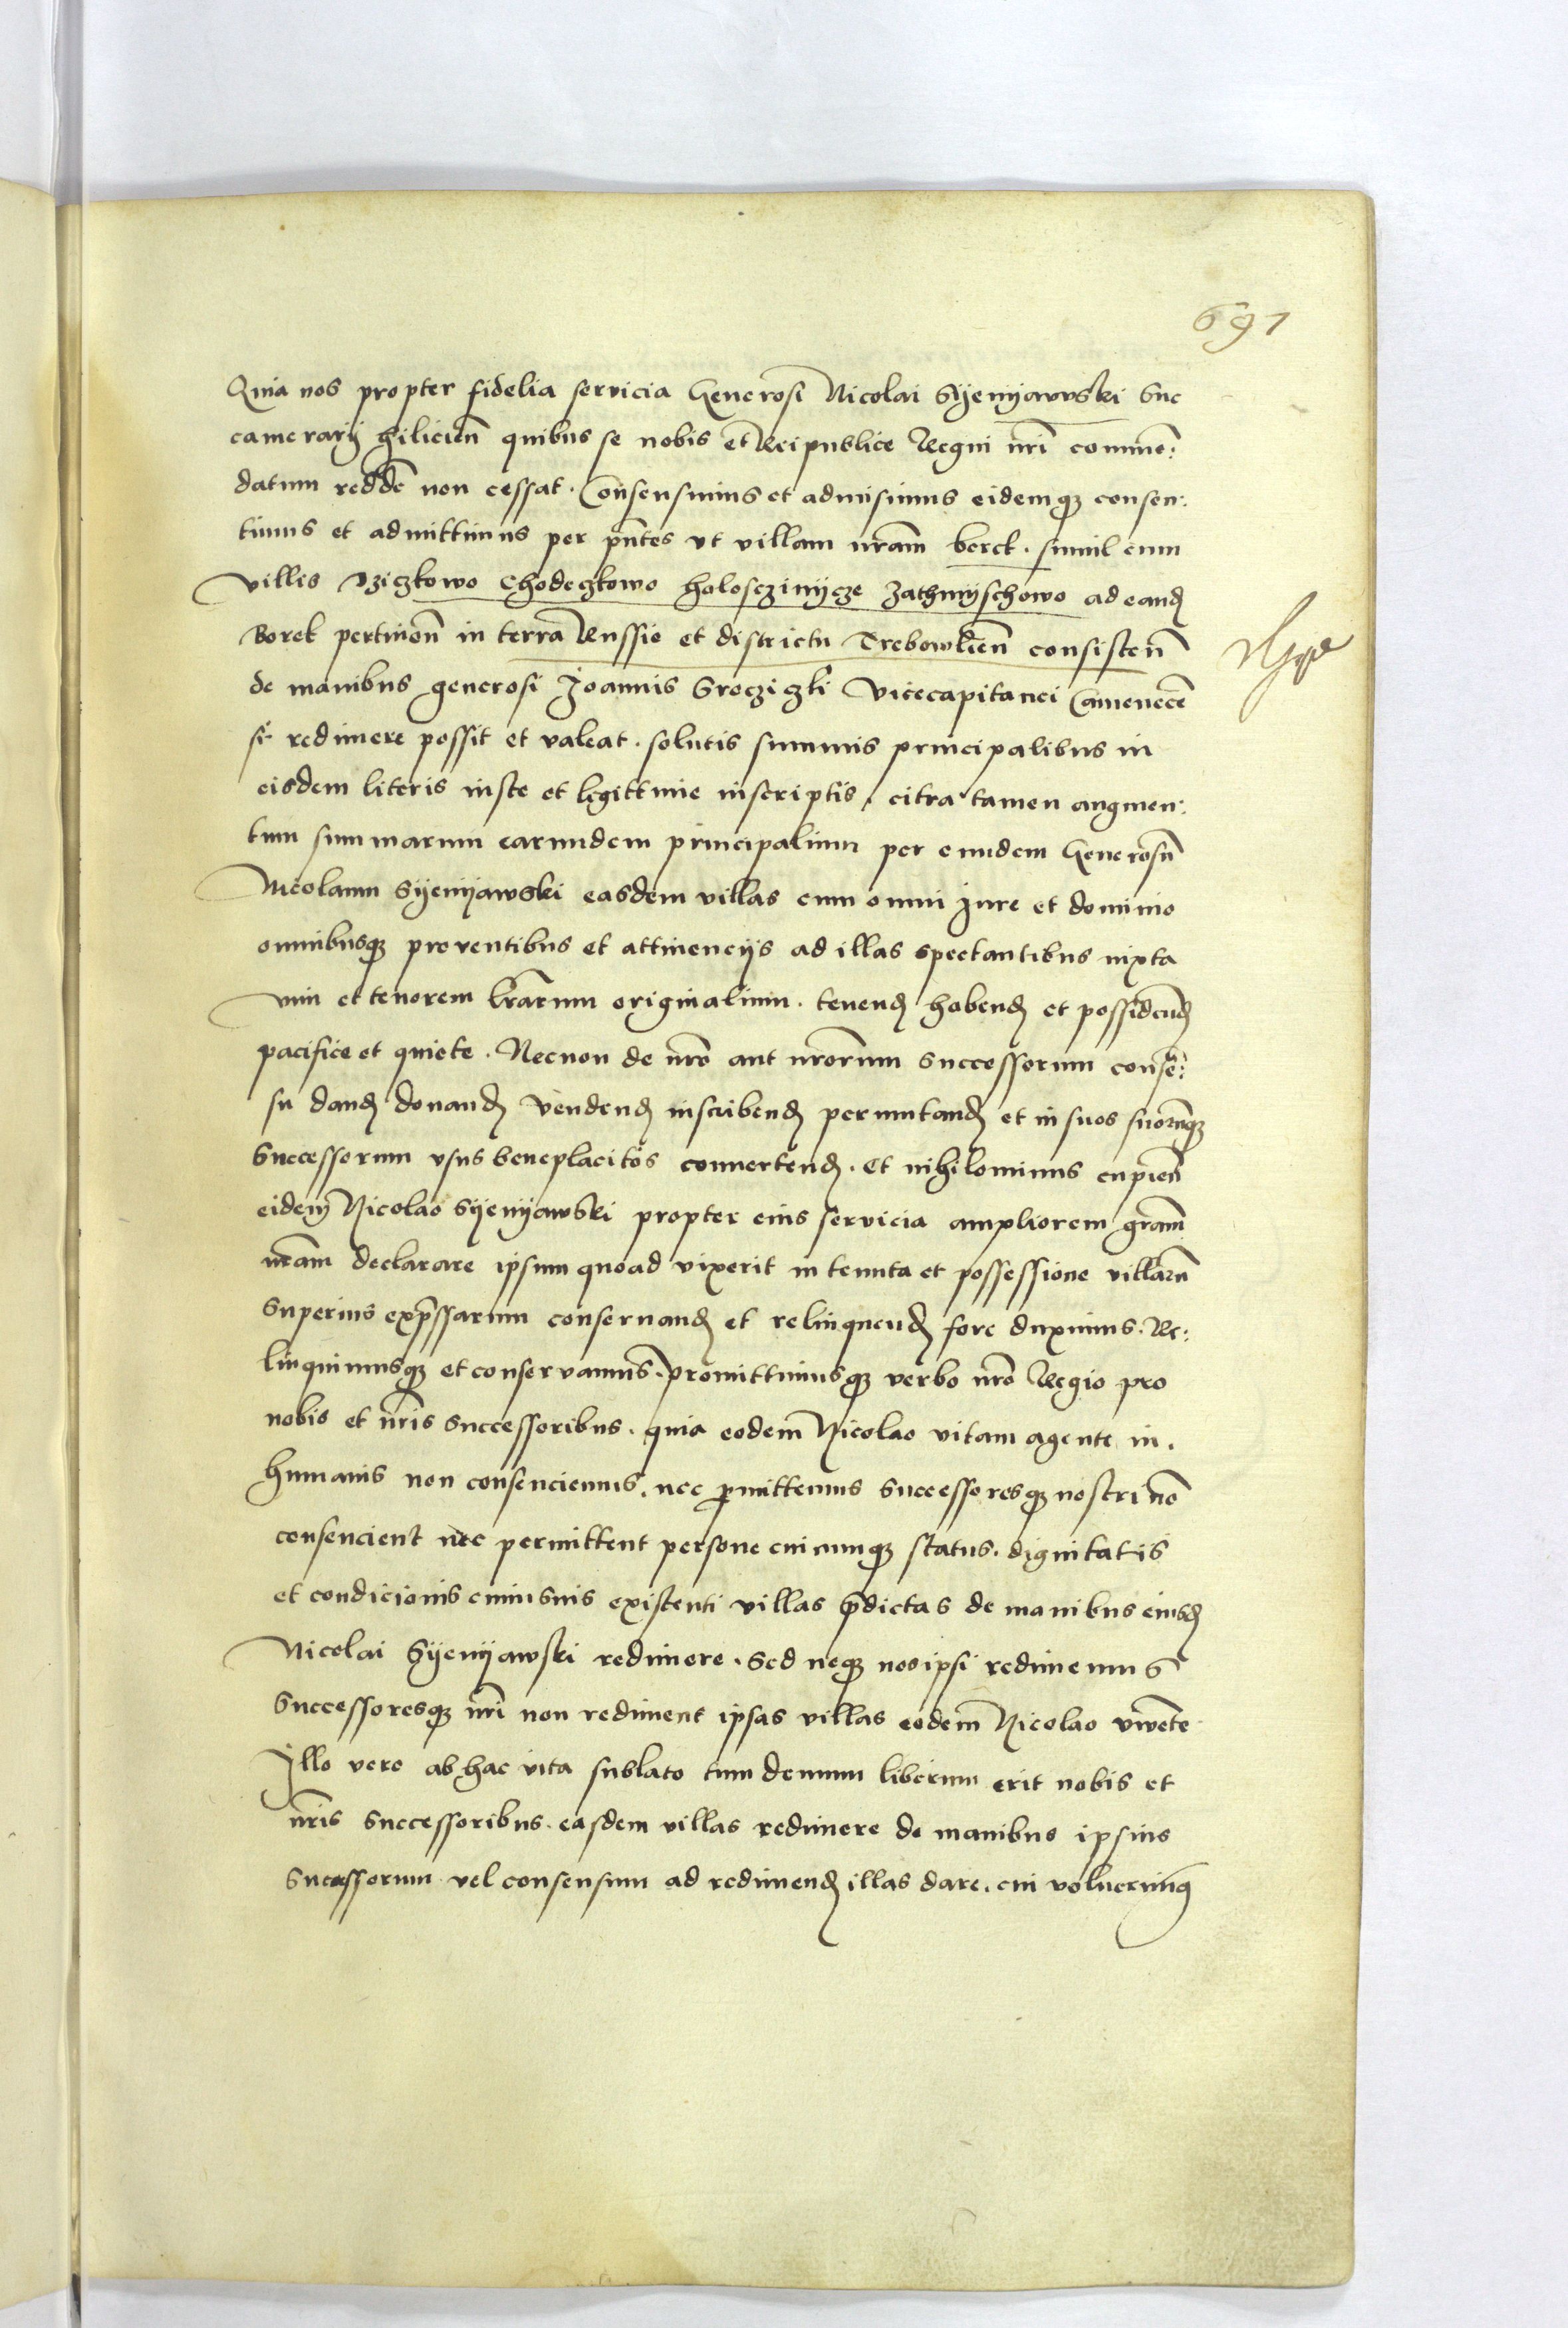 691
Quia nos propter fidelia servicia Generosi Nicolai Syenyawski Suc
camerarÿ Hilicien̄ quibus se nobis et Reipublice Regni nr̄i commen̄:
datum redde̅ non cessat. Consensimus et admisimus eidemqꝫ consen:
timus et admittimus per pn̄tes ut villam nr̄am borek. simul cum
villis Iziczkowo Chodeczkowo holosczinÿcze Zathmÿschowo ad eand
Borek pertinen̄ in terra Russie et districtu Trebowlien̄ consisten̄
de manibus generosi Joannis Srocziczki Vicecapitanei Camenecen̄
si redimere possit et valeat. solutis summis principalibus in
eisdem literis iuste et legittime inscriptis, citra tamen augmen:
tum summarum earumdem principalium per eundem Generosū
Nicolaum Syenÿawski easdem villas cum omni Jure et dominio
omnibusqꝫ proventibus et attinencÿs ad illas spectantibus iuxta
vim et tenorem lr̄arum originalium. tenend habend et possidend
pacifice et quiete. Necnon de nr̄o aut nr̄orum successorum consē:
su dand donand vendend inscribend permutand et in suos suorūqꝫ
Successorum usus beneplacitos convertend. Et nihilominus cupien̄
eidem Nicolao Syenÿawski propter eius servicia ampliorem gr̄am
nr̄am declarare ipsum quoad vixerit in tenuta et possessione villarū
Superius expr̄ssarum conservand et relinquend fore duximus. Re:
linquimusqꝫ et conservamus. promittimusqꝫ verbo nr̄o Regio pro
nobis et nr̄is Successoribus. quia eodem Nicolao vitam agente in.
humanis non consenciemus. nec p̱mittemus Successoresqꝫ nostri nō
consencient nec permittent persone cuicumqꝫ status. dignitatis
et condicionis cuiusvis existenti villas p̄dictas de manibus eiusd
Nicolai Syenÿawski redimere. Sed neqꝫ nos ipsi redimemus
Successoresqꝫ nr̄i non rediment ipsas villas eodem Nicolao vivēte
Illo vero ab hac vita sublato tum demum liberum erit nobis et
nr̄is Successoribus. easdem villas redimere de manibus ipsius
Successorum vel consensum ad redimend illas dare. cui voluerimꝰ